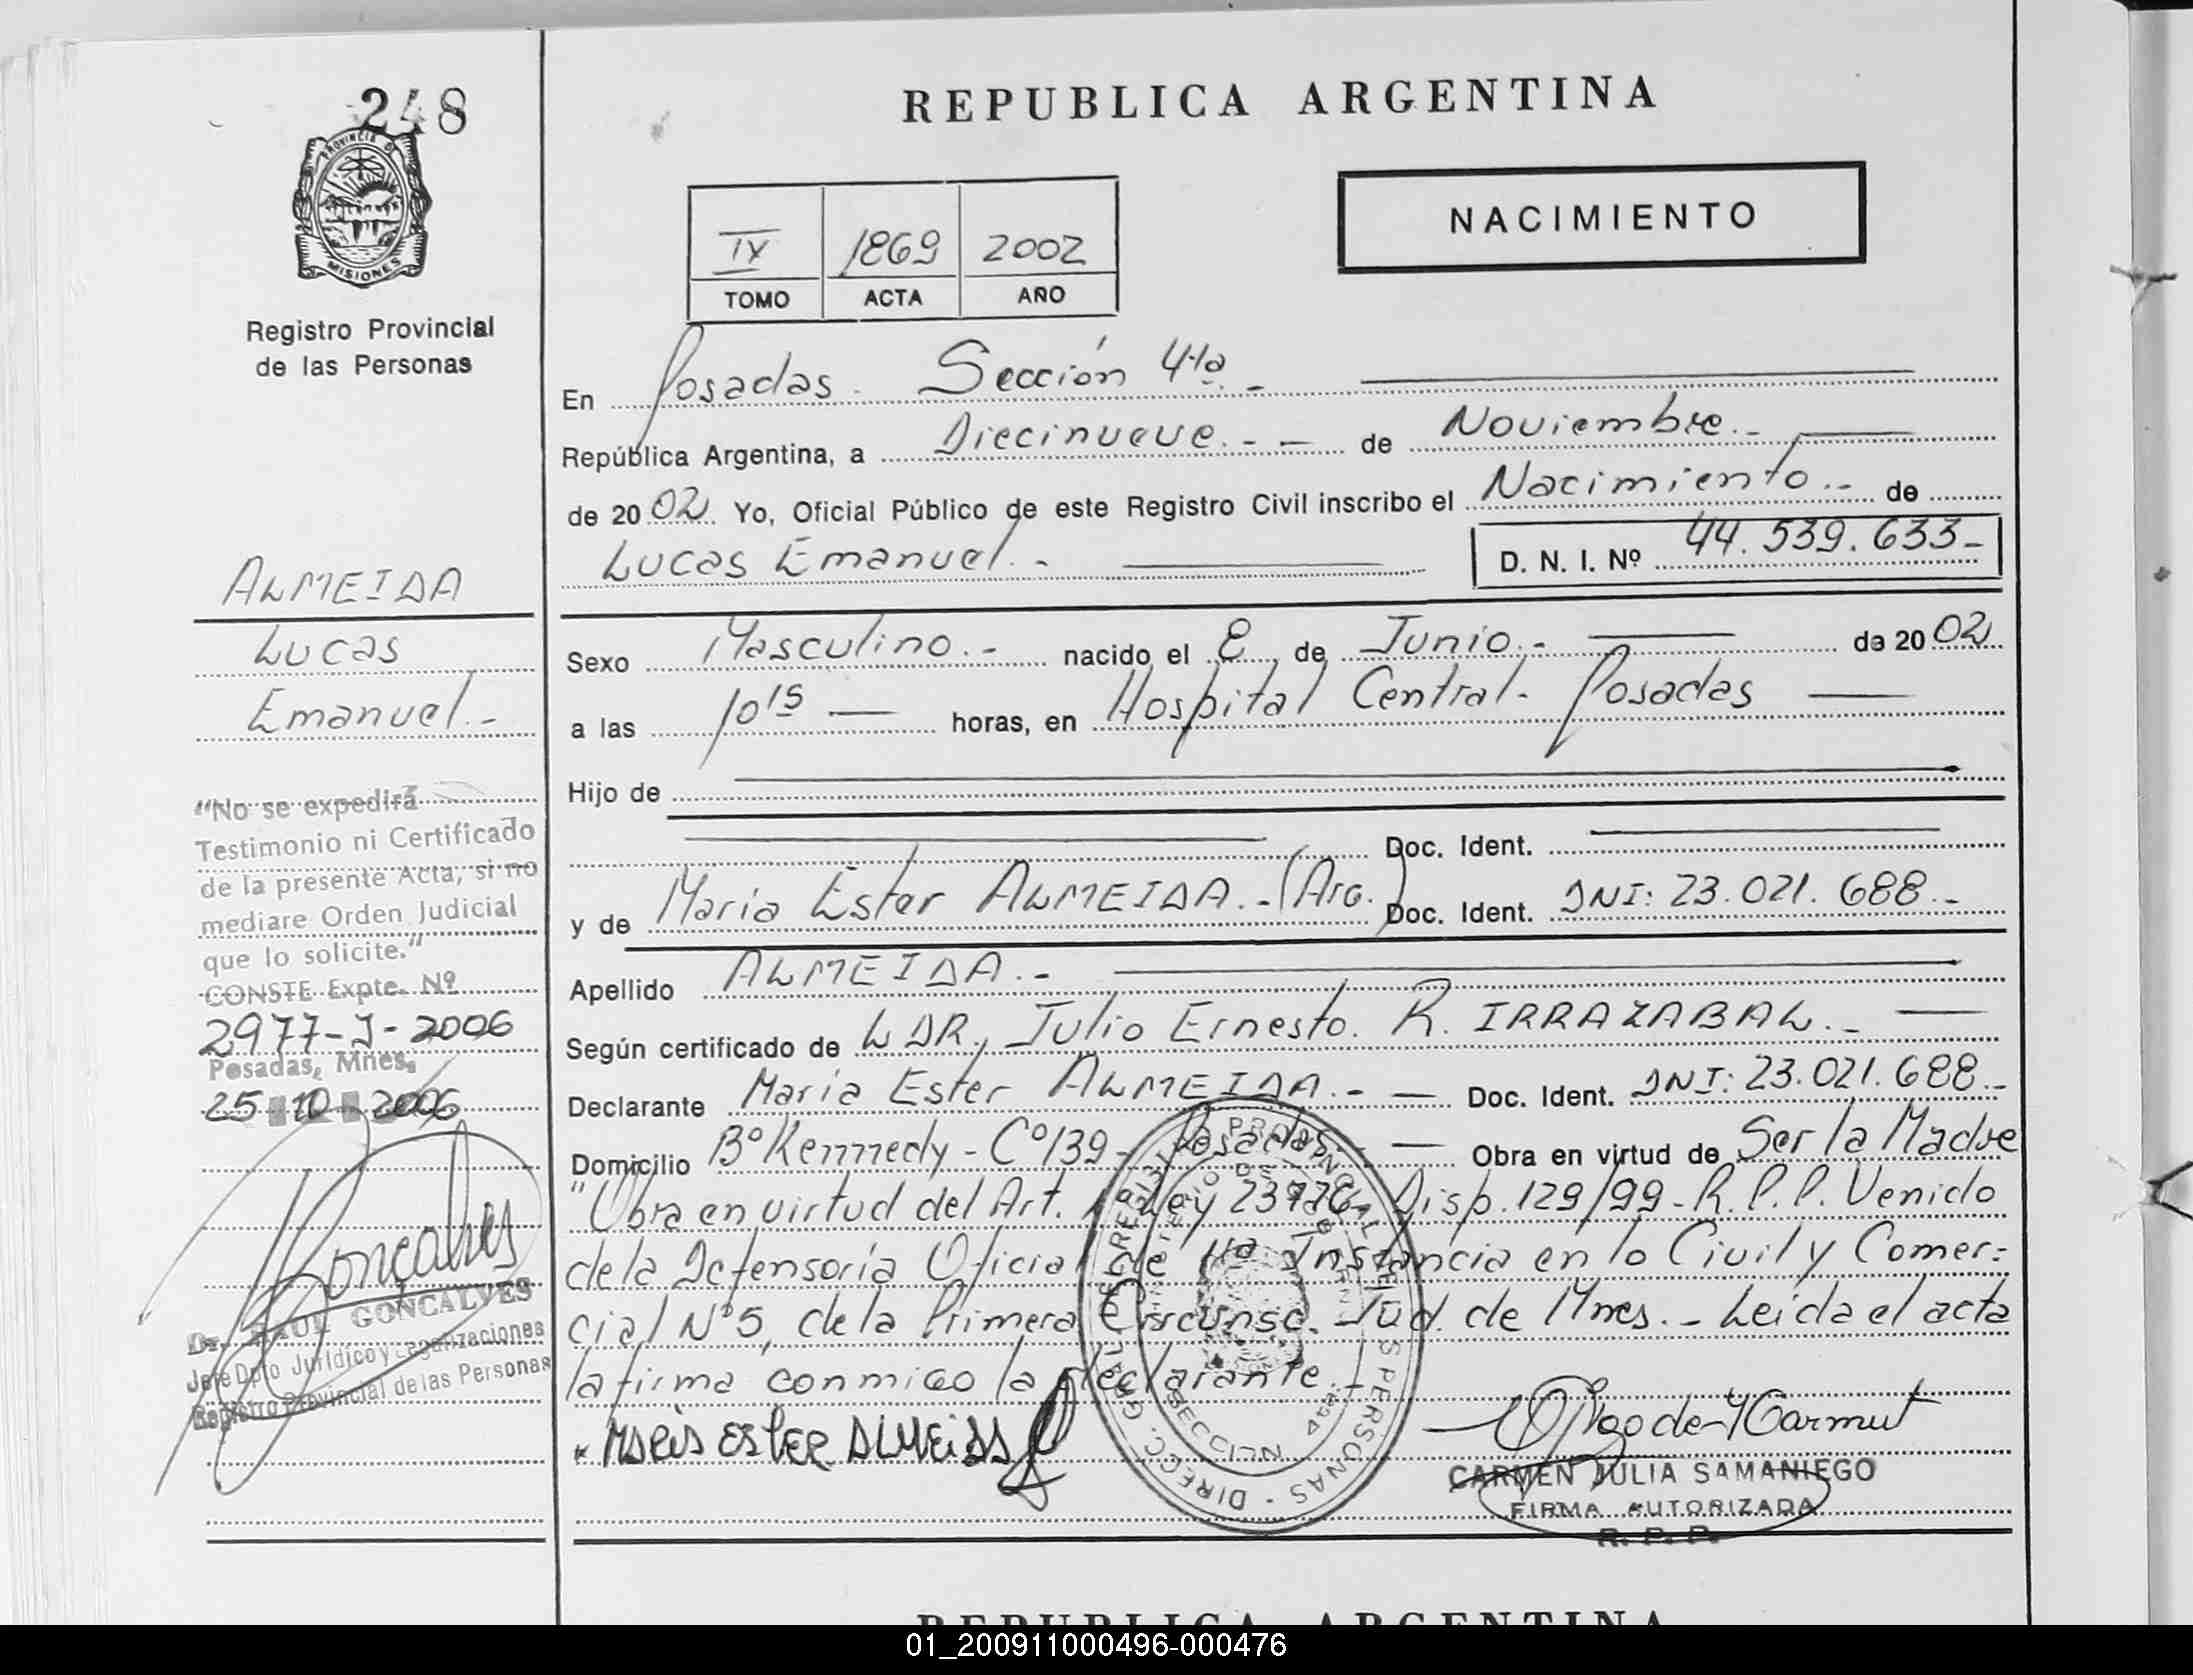 248
PROVINCIA DE
MISIONES
Registro Provincial
de las Personas
REPUBLICA ARGENTINA
NACIMIENTO
IV 1869 2002
TOMO ACTA AÑO
En Posadas. Sección 4ta.-
República Argentina, a Diecinueve.- - de Noviembre.-
de 2002. Yo, Oficial Público de este Registro Civil inscribo el Nacimiento.- de
Lucas Emanuel.-
D. N. I. Nº 44.539.633-
ALMEIDA
Lucas
Emanuel.-
Sexo Masculino.- nacido el 8 de Junio.- de 2002
a las 10 15 horas, en Hospital Central- Posadas
Hijo de
Doc. Ident.
y de Maria Ester ALMEIDA.-(Arg.) Doc. Ident. DNI: 23.021.688.-
Apellido ALMEIDA.-
Según certificado de L DR. Julio Ernesto. R. IRRAZABAL.-
Declarante Maria Ester ALMEIDA.- Doc. Ident. DNI: 23.021.688.-
Domicilio Bº Kennedy - Cº 139 - Posadas.- Obra en virtud de Ser la Madre
"Obra en virtud del Art. Ley 23776- Disp. 129/99- R.P.P. Venido
de la Defensoría Oficial de Instancia en lo Civil y Comer=
cial Nº5, de la Primera Circunsc. Jud. de Mnes.- Leída el acta
la firma conmigo la declarante.-
MARIA ESTER ALMEIDA
CARMEN JULIA SAMANIEGO
FIRMA AUTORIZADA
R. P. P.
"No se expedirá
Testimonio ni Certificado
de la presente Acta, si no
mediare Orden Judicial
que lo solicite."
CONSTE Expte. Nº
2977-J-2006
Posadas, Mnes.
25 10 2006
Goncalves
Dr. RAUL GONCALVES
Jefe Dpto Jurídico y Legalizaciones
Registro Provincial de las Personas
REPUBLICA ARGENTINA
01_200911000496-000476